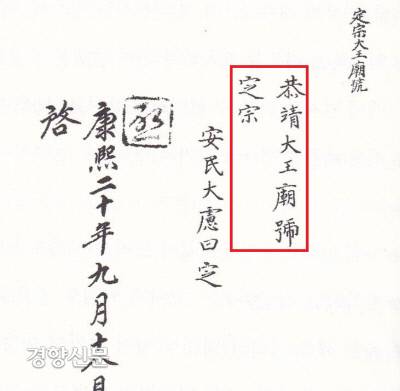 定宗大王廟號
恭靖大王廟號
定宗
安民大慮曰定
康熙二十年九月十八日
啓
경향신문